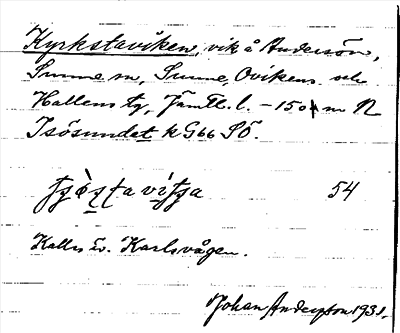 Kyrkstaviken, vik å Andersön,
Sunne sn, Sunne, Ovikens och
Hallens tg, Jämtl. l. – 150 m N
Isösundet k G66 SÖ.
54
Kallas äv. Karlsvågen.
Johan Anderson 1931.